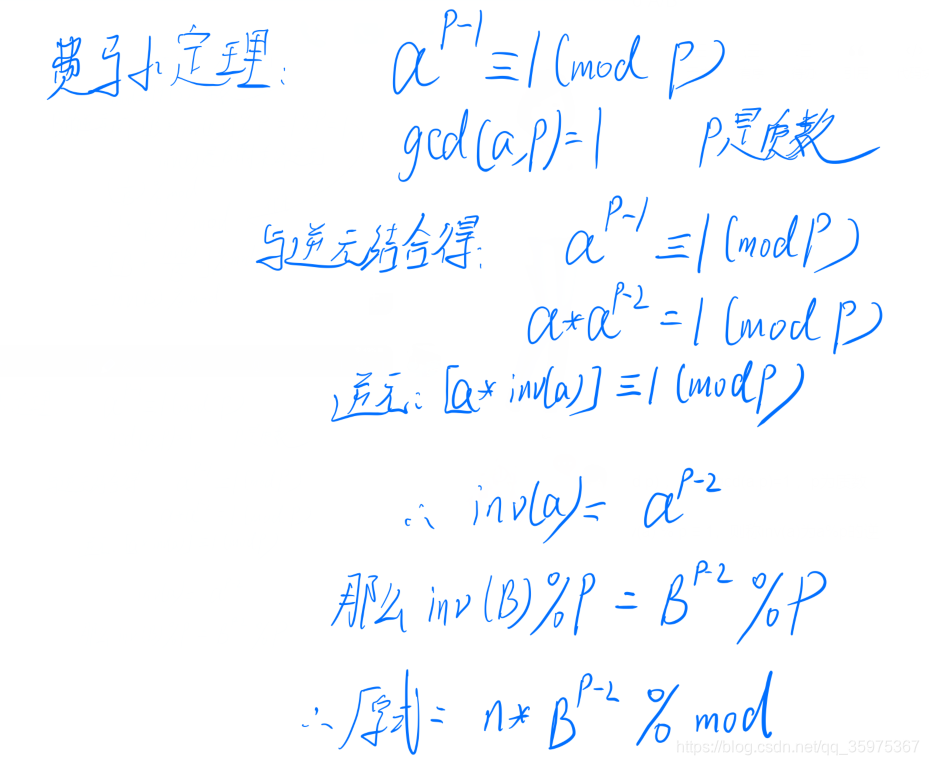 费马小定理: a^{p-1} ≡ 1 (mod p)
gcd(a,p)=1 p是质数
与逆元结合得: a^{p-1} ≡ 1 (mod p)
a*a^{p-2} = 1 (mod p)
逆元: [a* inv(a)] ≡ 1 (mod p)
∴ inv(a) = a^{p-2}
那么 inv(B)%p = B^{p-2} %p
∴ 原式 = n* B^{p-2} % mod
https://blog.csdn.net/qq_35975367